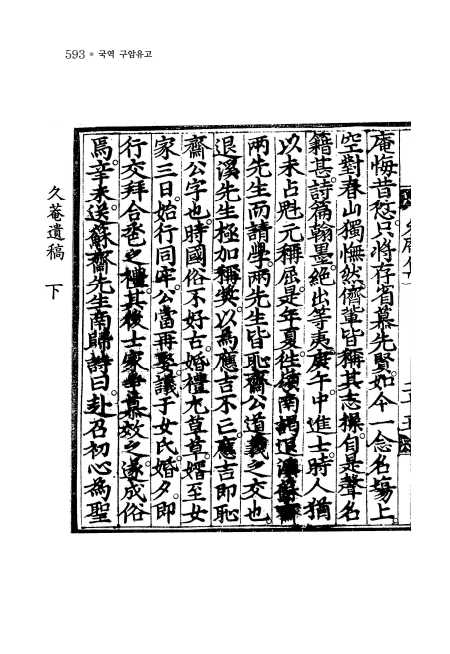 593 ● 국역 구암유고
久菴遺稿 下
庵悔昔愆只將存省慕先賢如今一念名場上
空對春山獨憮然儕軰皆稱其志操自是聲名
籍甚詩篇翰墨絶出等夷庚午中進士時人猶
以未占魁元稱屈是年夏徃嶺南謁退溪蘇齋
兩先生而請學兩先生皆恥齋公道義之交也
退溪先生極加稱奬以爲應吉不亡應吉卽恥
齋公字也時國俗不好古婚禮尤草草婿至女
家三日始行同牢公當再娶議于女氏婚夕卽
行交拜合卺之禮其後士家多慕效之遂成俗
焉辛未送蘇齋先生南歸詩曰赴召初心爲聖